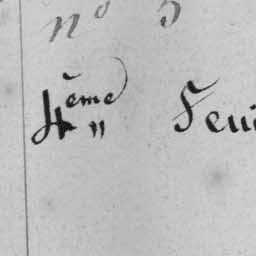 nº 5
4ème " Feui